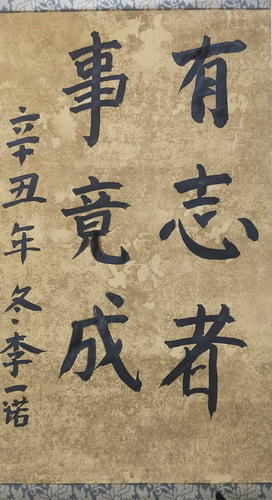 有志者
事竟成
辛丑年冬·李一诺